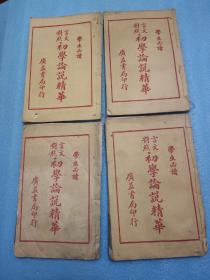 學生必讀
言文對照
初學論說精華
廣益書局印行
學生必讀
言文對照
初學論說精華
廣益書局印行
學生必讀
言文對照
初學論說精華
廣益書局印行
學生必讀
言文對照
初學論說精華
廣益書局印行